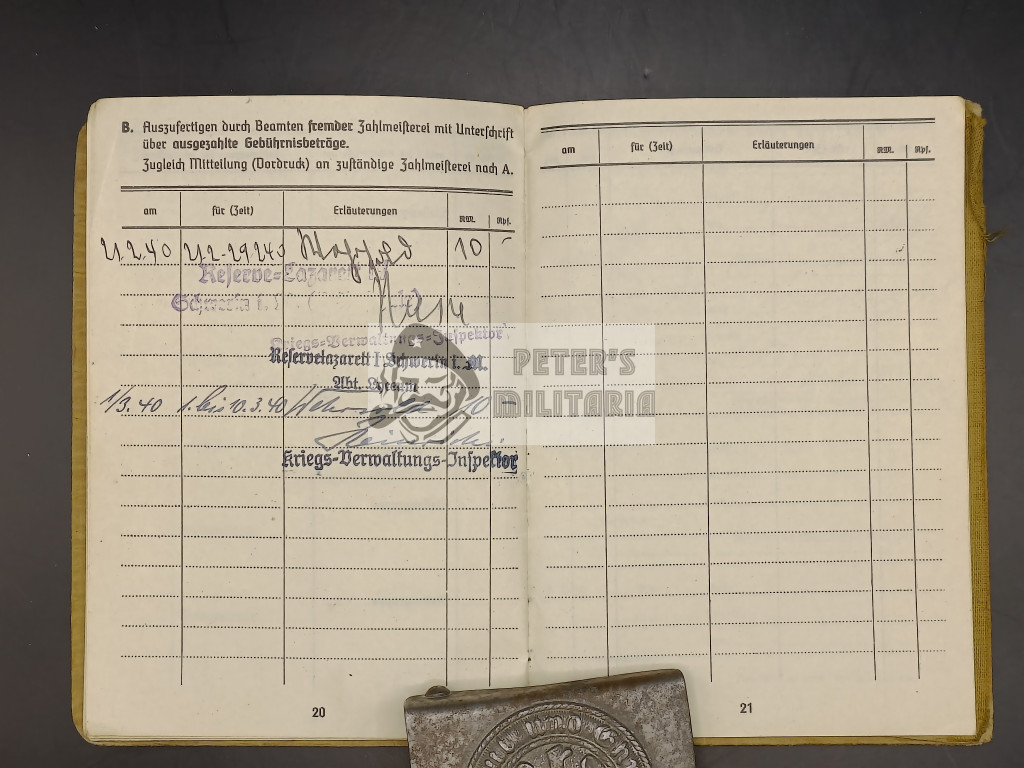 B. Auszufertigen durch Beamten fremder Zahlmeisterei mit Unterschrift
über ausgezahlte Gebührnisbeträge.
Zugleich Mitteilung (Vordruck) an zuständige Zahlmeisterei nach A.
am für (Zeit) Erläuterungen RM. Rpf.
21.2.40 21.2.-29.2.40 Wehrsold 10 -
Reserve-Lazarett
Schwerin i.
Kriegs-Verwaltungs-Inspektor
Reservelazarett I Schwerin i. M.
Abt. Lyzeum
1/3.40 1. bis 10.3.40 Wehrsold 10 -
Kriegs-Verwaltungs-Inspektor
20
am für (Zeit) Erläuterungen RM. Rpf.
21
PETER'S
MILITARIA